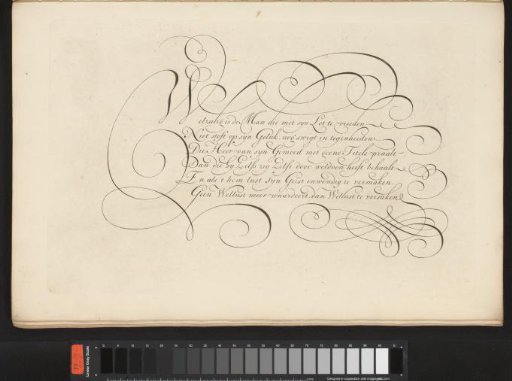 Welzalig is de Man die met syn Lot te vreden
Niet stoft op syn Geluk nog swigt in tegenheden
Die Heer van syn Gemoed met geene Titels praalt
Dan die hy Zelfs op Zelfs door
En als 't hem lust Syn Geest inwendig te vermaken
Geen Wellust meer waardeert dan Wellust te versaken